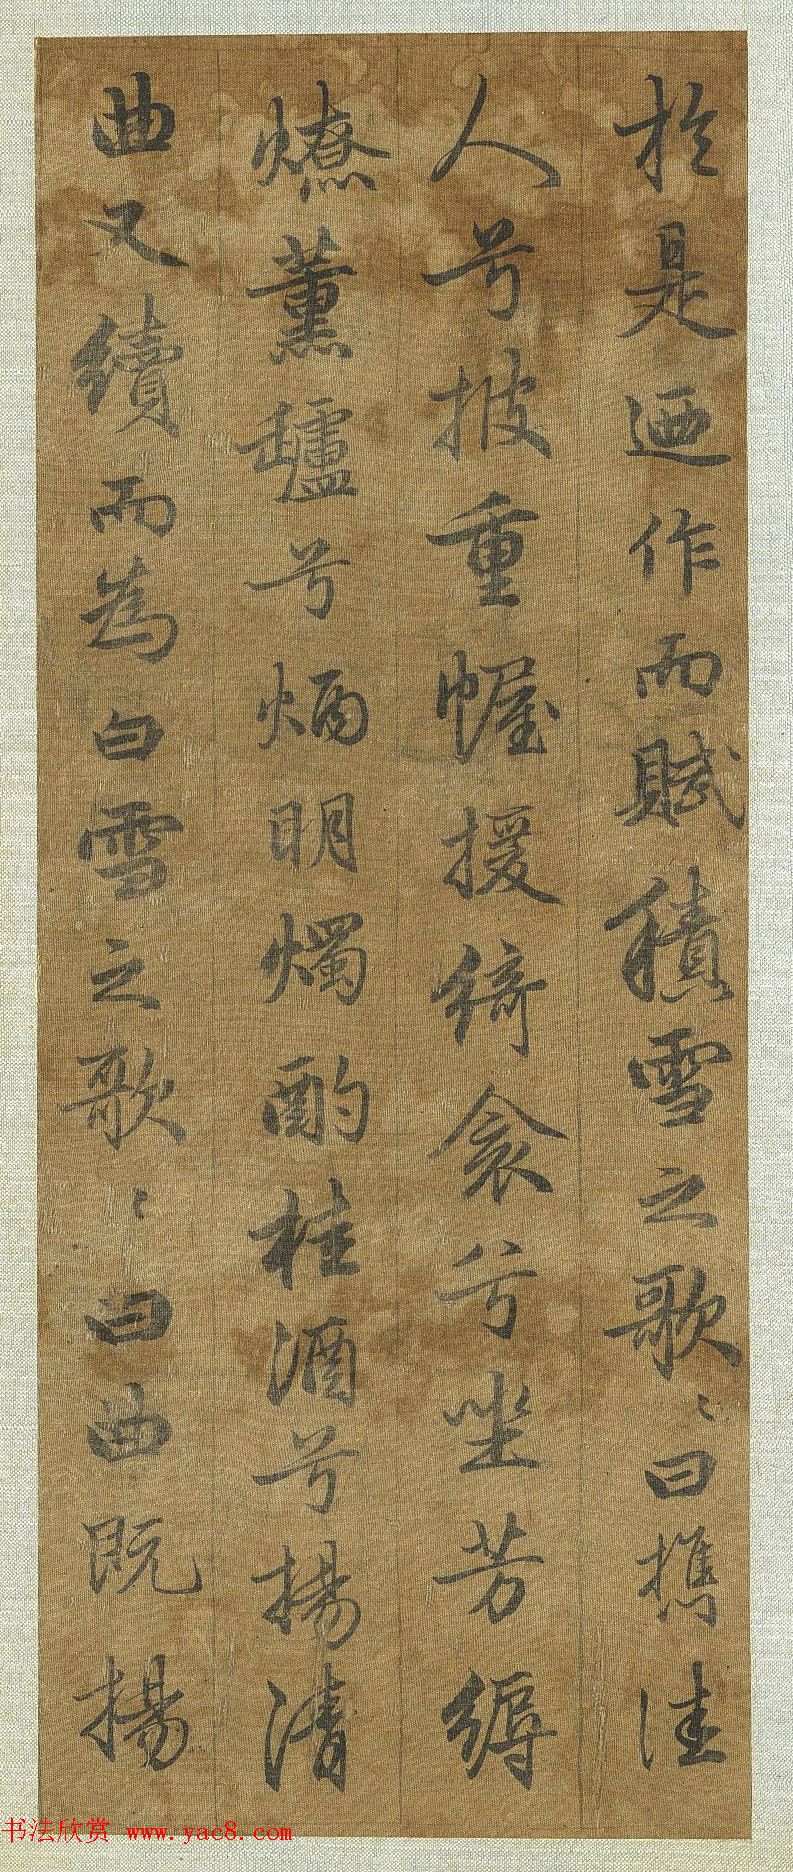 於是迺作而賦積雪之歌〻曰攜佳
人兮披重幄援綺衾兮坐芳縟
燎薰鑪兮炳明燭酌桂酒兮揚清
曲又續而為白雪之歌〻曰曲既揚
书法欣赏 www.yac8.com